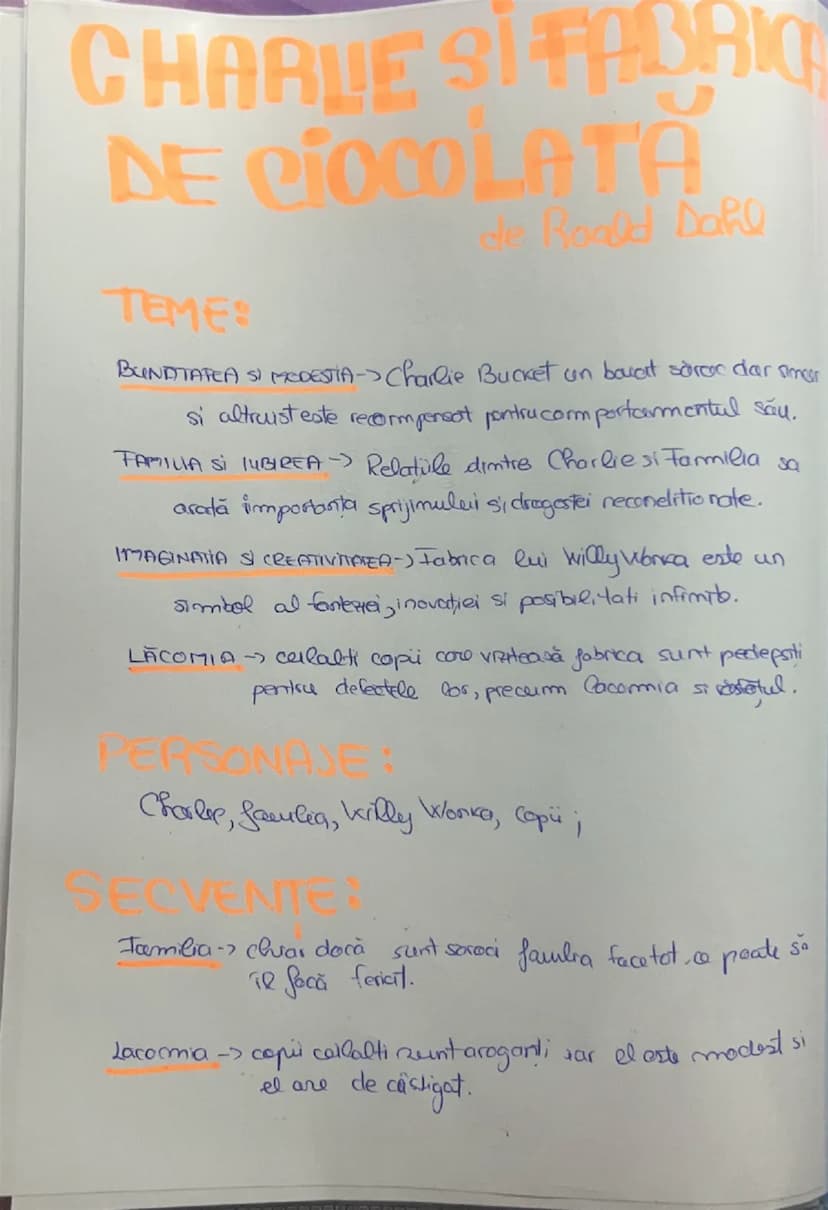 CHARLIE ȘI FABRICA
DE CIOCOLATĂ
de Roald Dahl
TEME:
BUNĂTATEA SI MODESTIA -> Charlie Bucket un baiat sărac dar
si altruist este recompensat pentru comportamentul său.
FAMILIA SI IUBIREA -> Relațiile dintre Charlie si Familia sa
arată importanța sprijinului si dragostei neconditionate.
IMAGINATIA SI CREATIVITATEA -> Fabrica lui Willy Wonka este un
simbol al fanteziei, inovației si posibilitati infinite.
LĂCOMIA -> ceilalti copii care vizitează fabrica sunt pedepsiti
pentru defectele lor, precum lacomia si
PERSONAJE:
Charlie, familia, Willy Wonka, copii;
SECVENȚE:
Familia -> chiar dacă sunt saraci familia face tot ce poate să
îl facă fericit.
Lacomia -> copii ceilalti sunt aroganti iar el este modest si
el are de câștigat.